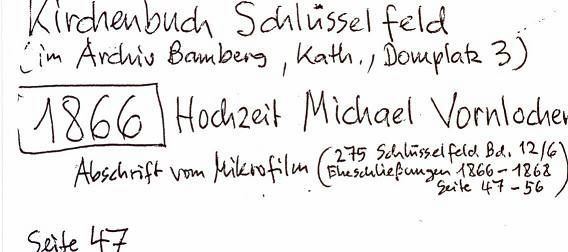 Kirchenbuch Schlüsselfeld
(im Archiv Bamberg, Kath., Domplatz 3)
1866 Hochzeit Michael Vornlocher
Abschrift vom Mikrofilm (275 Schlüsselfeld Bd. 12/6)
Eheschließungen 1866-1868
Seite 47-56
Seite 47